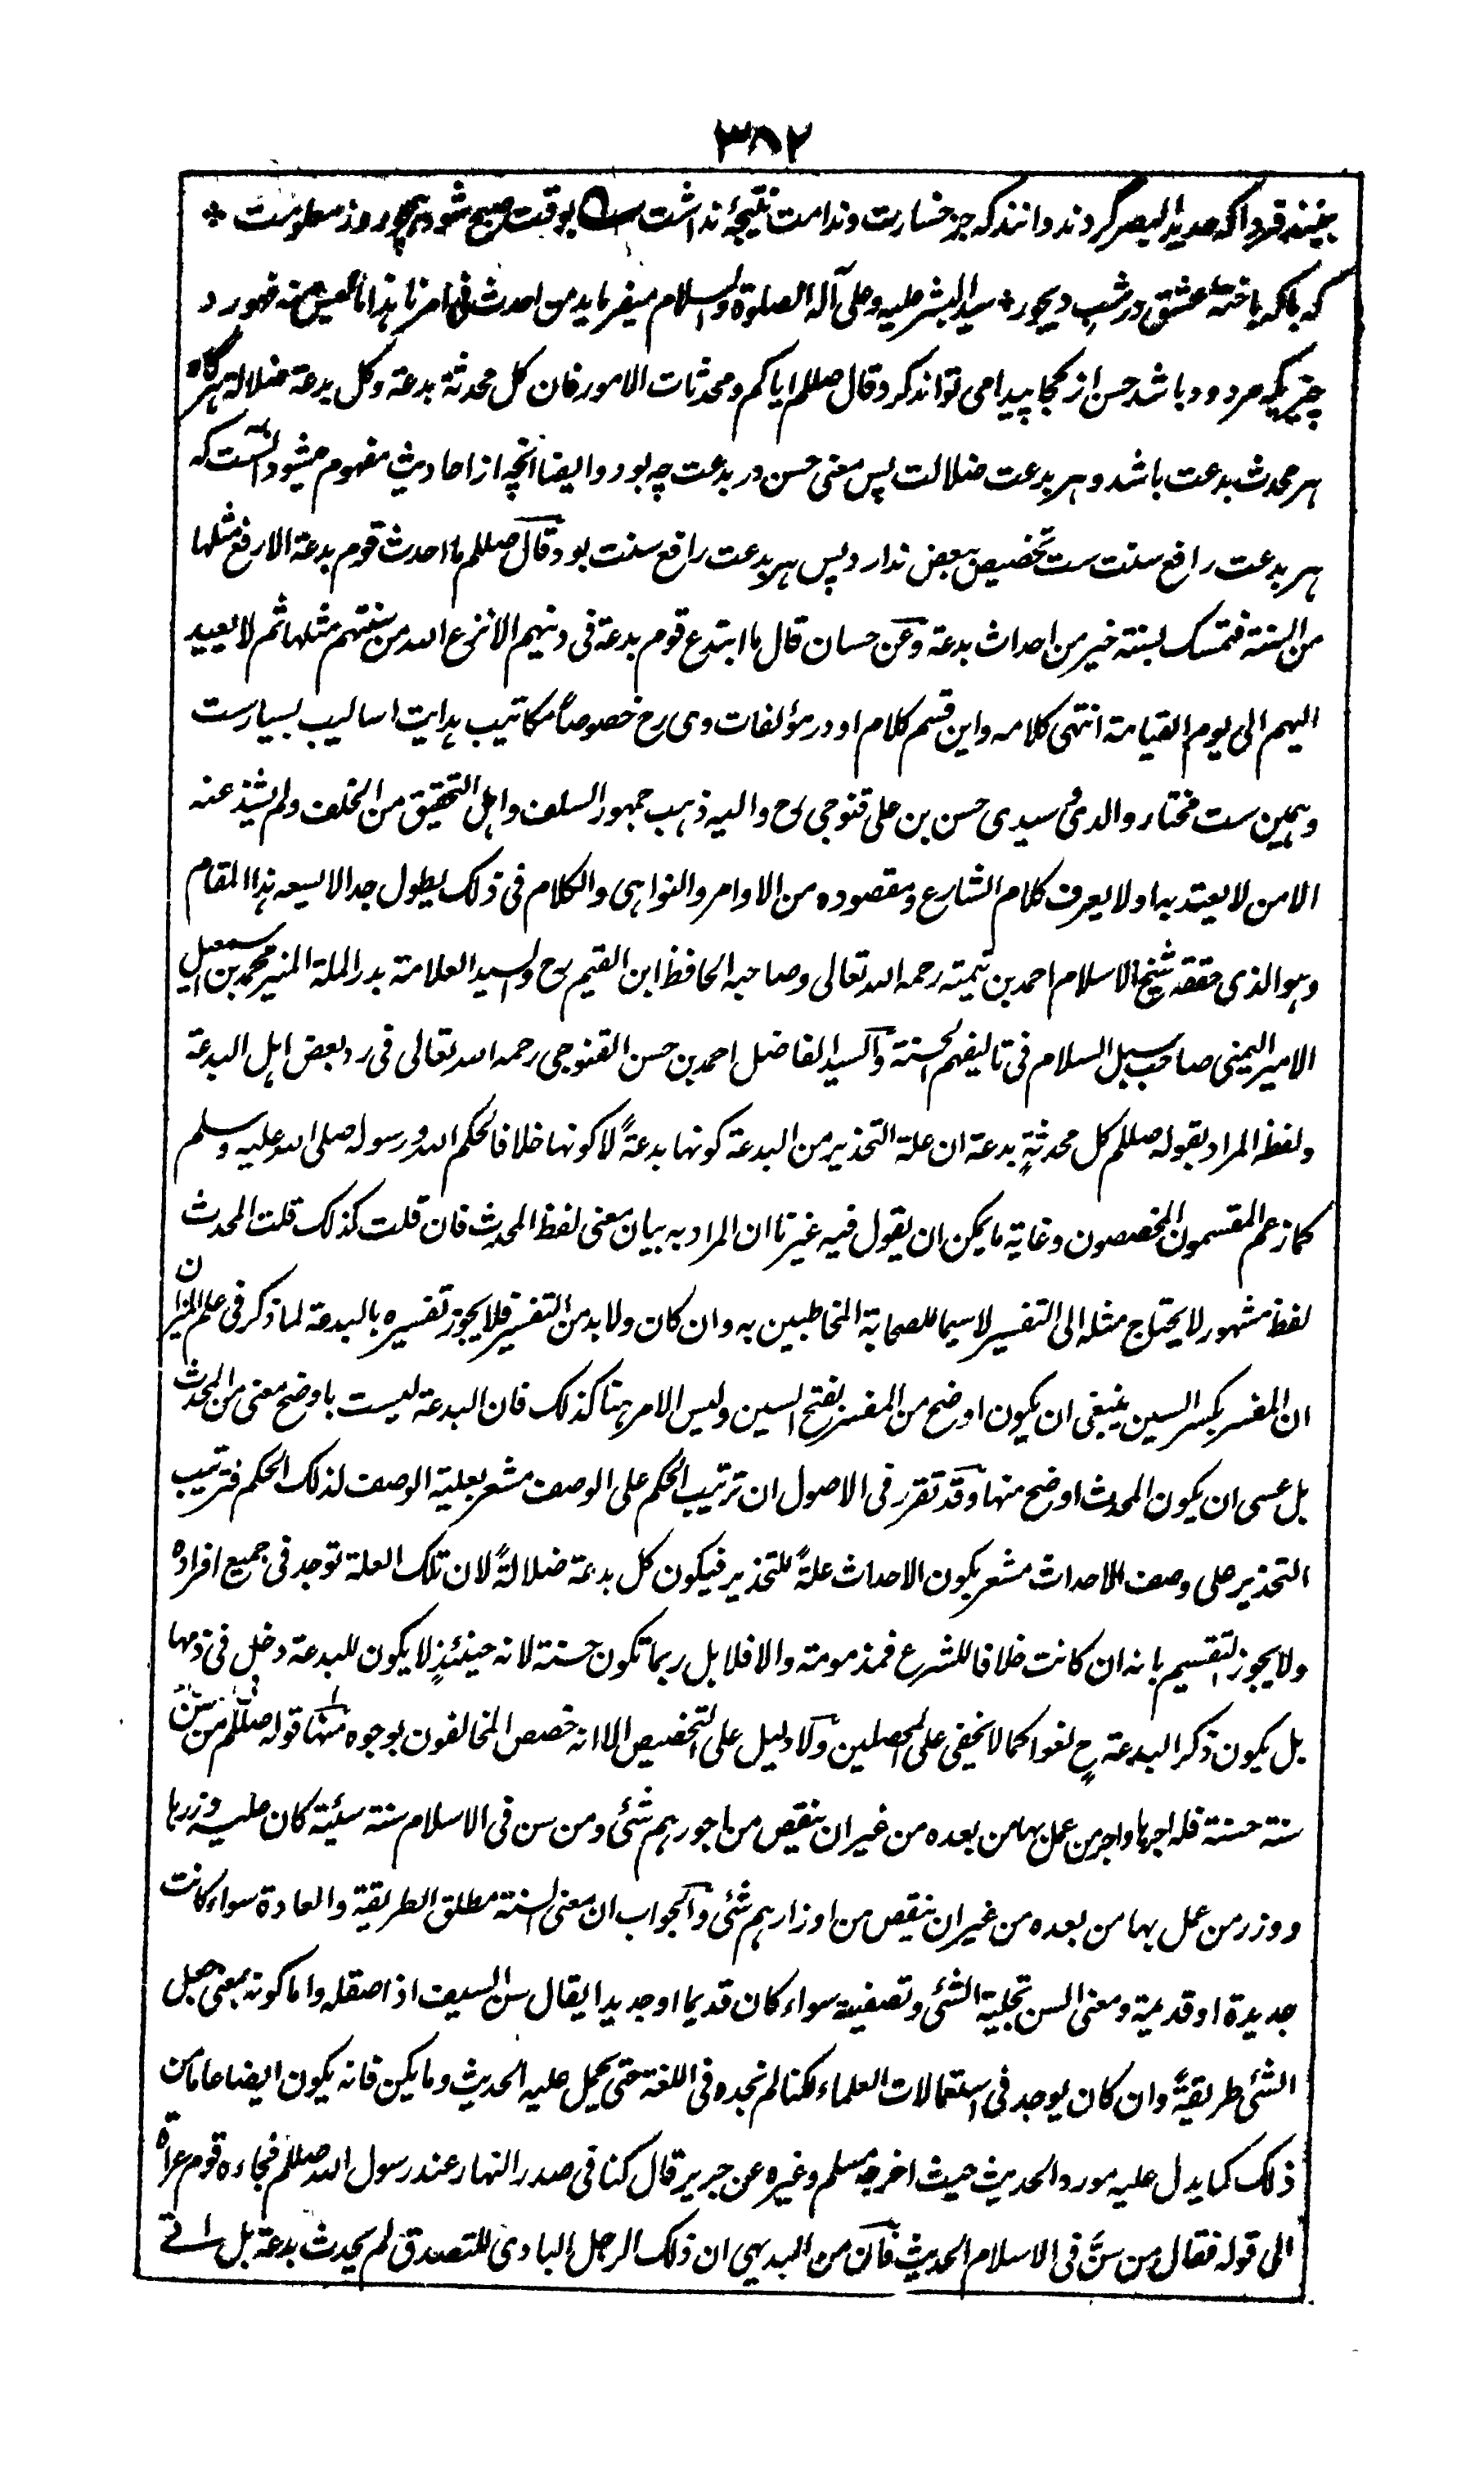 ۳۸۲
بینند فردا که حدید البصر گردند دانند که جز خسارت و ندامت نتیجۀ نداشت بوقت صبح شود همچو روز معلومت *
که باکه باختۀ عشق در شب دیجور * سید البشر علیه وعلی آله الصلوة والسلام میفرماید من احدث فی امرنا هذا ما لیس منه فهو رد
چیزیکه مردود باشد حسن از کجا پیدا می تواند کرد وقال صللم ایاکم ومحدثات الامور فان کل محدثة بدعة وکل بدعة ضلالة هرگاه
هر محدث بدعت باشد و هر بدعت ضلالت پس معنی حسن در بدعت چه بود و ایضا انچه از احادیث مفهوم میشود آنست که
هر بدعت رافع سنت ست تخصیص ببعض ندارد پس هر بدعت رافع سنت بود وقال صللم ما احدث قوم بدعة الا رفع مثلها
من السنة فتمسک بسنته خیر من احداث بدعة وعن حسان قال ما ابتدع قوم بدعة فی دینهم الا نزع الله من سنتهم مثلها ثم لا یعید
الیهم الی یوم القیامة انتهی کلامه واین قسم کلام او در مؤلفات وی رح خصوصاً مکاتیب هدایت اسالیب بسیارست
وهمین ست مختار والدی سیدی حسن بن علی قنوجی رح والیه ذهب جمهور السلف واهل التحقیق من الخلف ولم یشذ عنه
الا من لا یعتد به او لا یعرف کلام الشارع ومقصوده من الاوامر والنواهی والکلام فی ذلک یطول جدا لا یسعه هذا المقام
وهو الذی حققه شیخ الاسلام احمد بن تیمیة رحمه الله تعالی وصاحبه الحافظ ابن القیم رح والسید العلامة بدر الملة المنیر محمد بن اسمعیل
الامیر الیمنی صاحب سبل السلام فی تالیفهم الحسنة والسید الفاضل احمد بن حسن القنوجی رحمه الله تعالی فی رد بعض اهل البدعة
ولفظه المراد بقوله صللم کل محدثةٍ بدعة ان علة التحذیر من البدعة کونها بدعةً لا کونها خلافا لحکم الله ورسوله صلی الله علیه وسلم
کما زعم المقسمون المخصصون وغایة ما یمکن ان یقول فیه غیرنا ان المراد به بیان معنی لفظ المحدث فان قلت کذلک قلت المحدث
لفظ مشهور لا یحتاج مثله الی التفسیر لا سیما للصحابة المخاطبین به وان کان ولا بد من التفسیر فلا یجوز تفسیره بالبدعة لما ذکر فی علم المیزان
ان المفسر بکسر السین ینبغی ان یکون اوضح من المفسر بفتح السین ولیس الامر هنا کذلک فان البدعة لیست باوضح معنی من المحدث
بل عسی ان یکون المحدث اوضح منها وقد تقرر فی الاصول ان ترتیب الحکم علی الوصف مشعر بعلیة الوصف لذلک الحکم فترتیب
التحذیر علی وصف الاحداث مشعر بکون الاحداث علةً للتحذیر فیکون کل بدعة ضلالةً لان تلک العلة توجد فی جمیع افراده
ولا یجوز التقسیم بانه ان کانت خلافا للشرع فمذمومة والا فلا بل ربما تکون حسنة لانه حینئذٍ لا یکون للبدعة دخل فی ذمها
بل یکون ذکر البدعة ح لغوا کما لا یخفی علی المحصلین ولا دلیل علی التخصیص الا انه خصص المخالفون بوجوه منها قوله صللم من سن
سنة حسنة فله اجرها واجر من عمل بها من بعده من غیر ان ینقص من اجورهم شئی ومن سن فی الاسلام سنة سیئة کان علیه وزرها
ووزر من عمل بها من بعده من غیر ان ینقص من اوزارهم شئی والجواب ان معنی السنة مطلق الطریقة والعادة سواء کانت
جدیدة او قدیمة ومعنی السن تجلیة الشئی وتصفیه سواء کان قدیما او جدیدا یقال سن السیف اذا صقله واما کونه بمعنی جعل
الشئی طریقةً وان کان یوجد فی استعمالات العلماء لکنا لم نجده فی اللغة حتی یحمل علیه الحدیث وما یکن فانه یکون ایضا عاما من
ذلک کما یدل علیه مورد الحدیث حیث اخرجه مسلم وغیره عن جریر قال کنا فی صدر النهار عند رسول الله صللم فجاءه قوم عراة
الی قوله فقال من سنَّ فی الاسلام الحدیث فان من البدیهی ان ذلک الرجل البادی للتصدق لم یحدث بدعة بل اتے